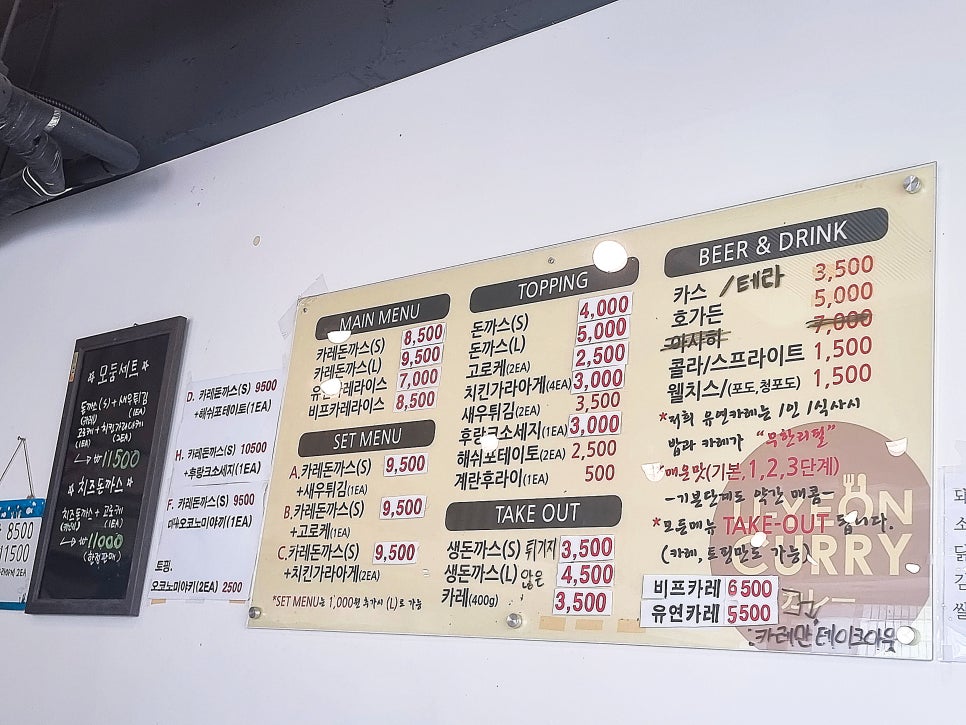 모둠세트
돈까스(S) + 새우튀김
(카레) (1EA)
고로케 + 치킨가라아게
(1EA) (2EA)
₩11500
치즈돈까스
치즈돈까스 + 고로케
(카레) (1EA)
₩11000
(한정판매)
8500
11500
2EA
D. 카레돈까스(S) 9500
+해쉬포테이토(1EA)
H. 카레돈까스(S) 10500
+후랑크소세지(1EA)
F. 카레돈까스(S) 9500
+미니오코노미야끼(1EA)
토핑.
오코노미야끼(2EA) 2500
MAIN MENU
카레돈까스(S) 8,500
카레돈까스(L) 9,500
유연카레라이스 7,000
비프카레라이스 8,500
SET MENU
A.카레돈까스(S) 9,500
+새우튀김(1EA)
B.카레돈까스(S) 9,500
+고로케(1EA)
C.카레돈까스(S) 9,500
+치킨가라아게(2EA)
*SET MENU는 1,000원 추가시 (L)로 가능
TOPPING
돈까스(S) 4,000
돈까스(L) 5,000
고로케(2EA) 2,500
치킨가라아게(4EA) 3,000
새우튀김(2EA) 3,500
후랑크소세지(1EA) 3,000
해쉬포테이토(2EA) 2,500
계란후라이(1EA) 500
TAKE OUT
생돈까스(S) 튀기지 3,500
생돈까스(L) 않은 4,500
카레(400g) 3,500
BEER & DRINK
카스 /테라 3,500
호가든 5,000
아사히 7,000
콜라/스프라이트 1,500
웰치스/(포도,청포도) 1,500
*저희 유연카레는 1인 1식사시
밥과 카레가 "무한리필"
*매운맛(기본,1,2,3단계)
-기본단계도 약간 매콤-
*모든메뉴 TAKE-OUT 됩니다.
(카레, 토핑만도 가능)
U.YEON
CURRY.
비프카레 6500
유연카레 5500
:카레만 테이크아웃